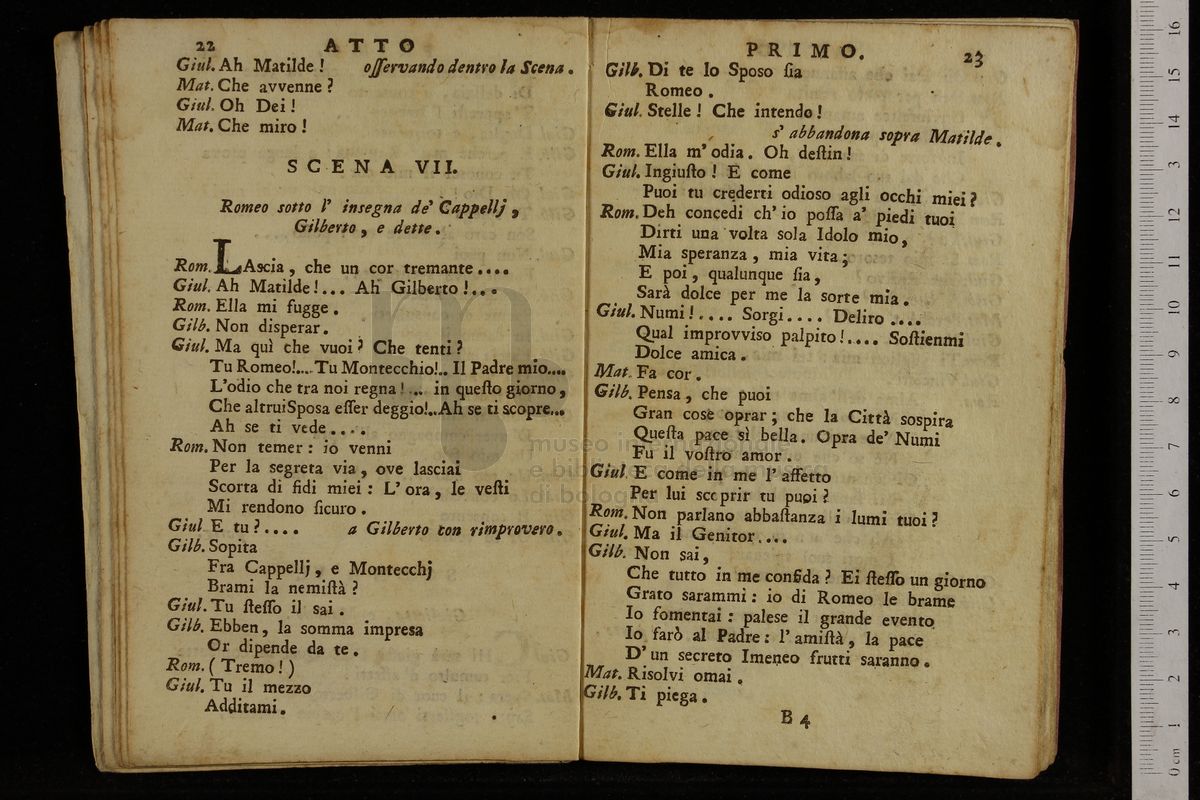 22 ATTO
Giul. Ah Matilde! oſſervando dentro la Scena.
Mat. Che avvenne?
Giul. Oh Dei!
Mat. Che miro!
SCENA VII.
Romeo sotto l' insegna de' Cappellj,
Gilberto, e dette.
Rom. LAscia, che un cor tremante....
Giul. Ah Matilde!... Ah Gilberto!...
Rom. Ella mi fugge.
Gilb. Non disperar.
Giul. Ma quì che vuoi? Che tenti?
Tu Romeo!.... Tu Montecchio!.. Il Padre mio....
L'odio che tra noi regna!... in queſto giorno,
Che altrui Sposa eſſer deggio!.. Ah se ti scopre...
Ah se ti vede....
Rom. Non temer: io venni
Per la segreta via, ove lasciai
Scorta di fidi miei: L' ora, le veſti
Mi rendono ſicuro.
Giul E tu?.... a Gilberto con rimprovero.
Gilb. Sopita
Fra Cappellj, e Montecchj
Brami la nemiſtà?
Giul. Tu ſteſſo il sai.
Gilb. Ebben, la somma impresa
Or dipende da te.
Rom. (Tremo!)
Giul. Tu il mezzo
Additami.
PRIMO. 23
Gilb. Di te lo Sposo ſia
Romeo.
Giul. Stelle! Che intendo!
s' abbandona sopra Matilde.
Rom. Ella m' odia. Oh deſtin!
Giul. Ingiuſto! E come
Puoi tu crederti odioso agli occhi miei?
Rom. Deh concedi ch' io poſſa a' piedi tuoi
Dirti una volta sola Idolo mio,
Mia speranza, mia vita;
E poi, qualunque ſia,
Sarà dolce per me la sorte mia.
Giul. Numi!.... Sorgi.... Deliro....
Qual improvviso palpito!.... Soſtienmi
Dolce amica.
Mat. Fa cor.
Gilb. Pensa, che puoi
Gran cose oprar; che la Città sospira
Queſta pace sì bella. Opra de' Numi
Fu il voſtro amor.
Giul E come in me l' affetto
Per lui scoprir tu puoi?
Rom. Non parlano abbaſtanza i lumi tuoi?
Giul. Ma il Genitor....
Gilb. Non sai,
Che tutto in me confida? Ei ſteſſo un giorno
Grato sarammi: io di Romeo le brame
Io fomentai: palese il grande evento
Io farò al Padre: l' amiſtà, la pace
D' un secreto Imeneo frutti saranno.
Mat. Risolvi omai.
Gilb. Ti piega.
B 4
museo internazionale
e biblioteca della musica
di bologna
16
15
14
13
12
11
10
9
8
7
6
5
4
3
2
1
0 cm